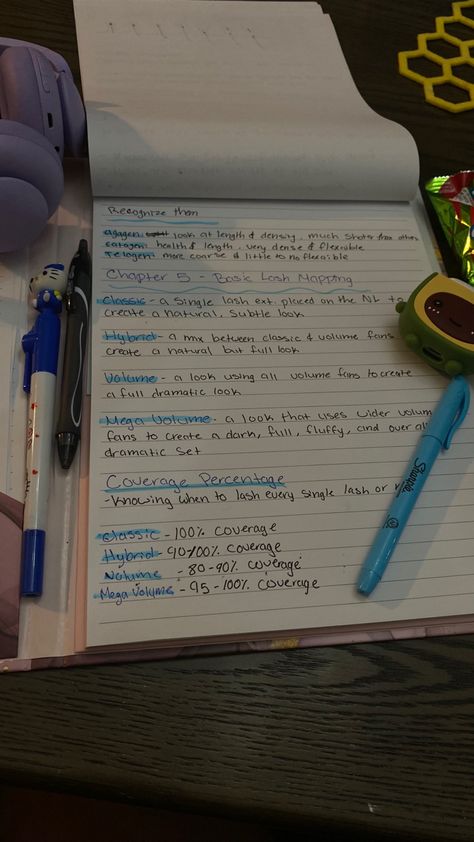 Recognize them
agagen: look at length & density, much shoter than others
catogen: health & length, very dense & flexible
Telogen: more coarse & little to no flexible
Chapter 5 - Basic Lash Mapping
Classic - a single lash ext. placed on the NL to
create a natural, subtle look
Hybrid - a mix between classic & volume fans
create a natural but full look
Volume - a look using all volume fans to create
a full dramatic look
Mega Volume - a look that uses wider volum
fans to create a dark, full, fluffy, and over all
dramatic set
Coverage Percentage
- Knowing when to lash every single lash or
Classic - 100% coverage
Hybrid - 90-100% coverage
Volume - 80-90% coverage
Mega Volume - 95-100% coverage
Sharpie